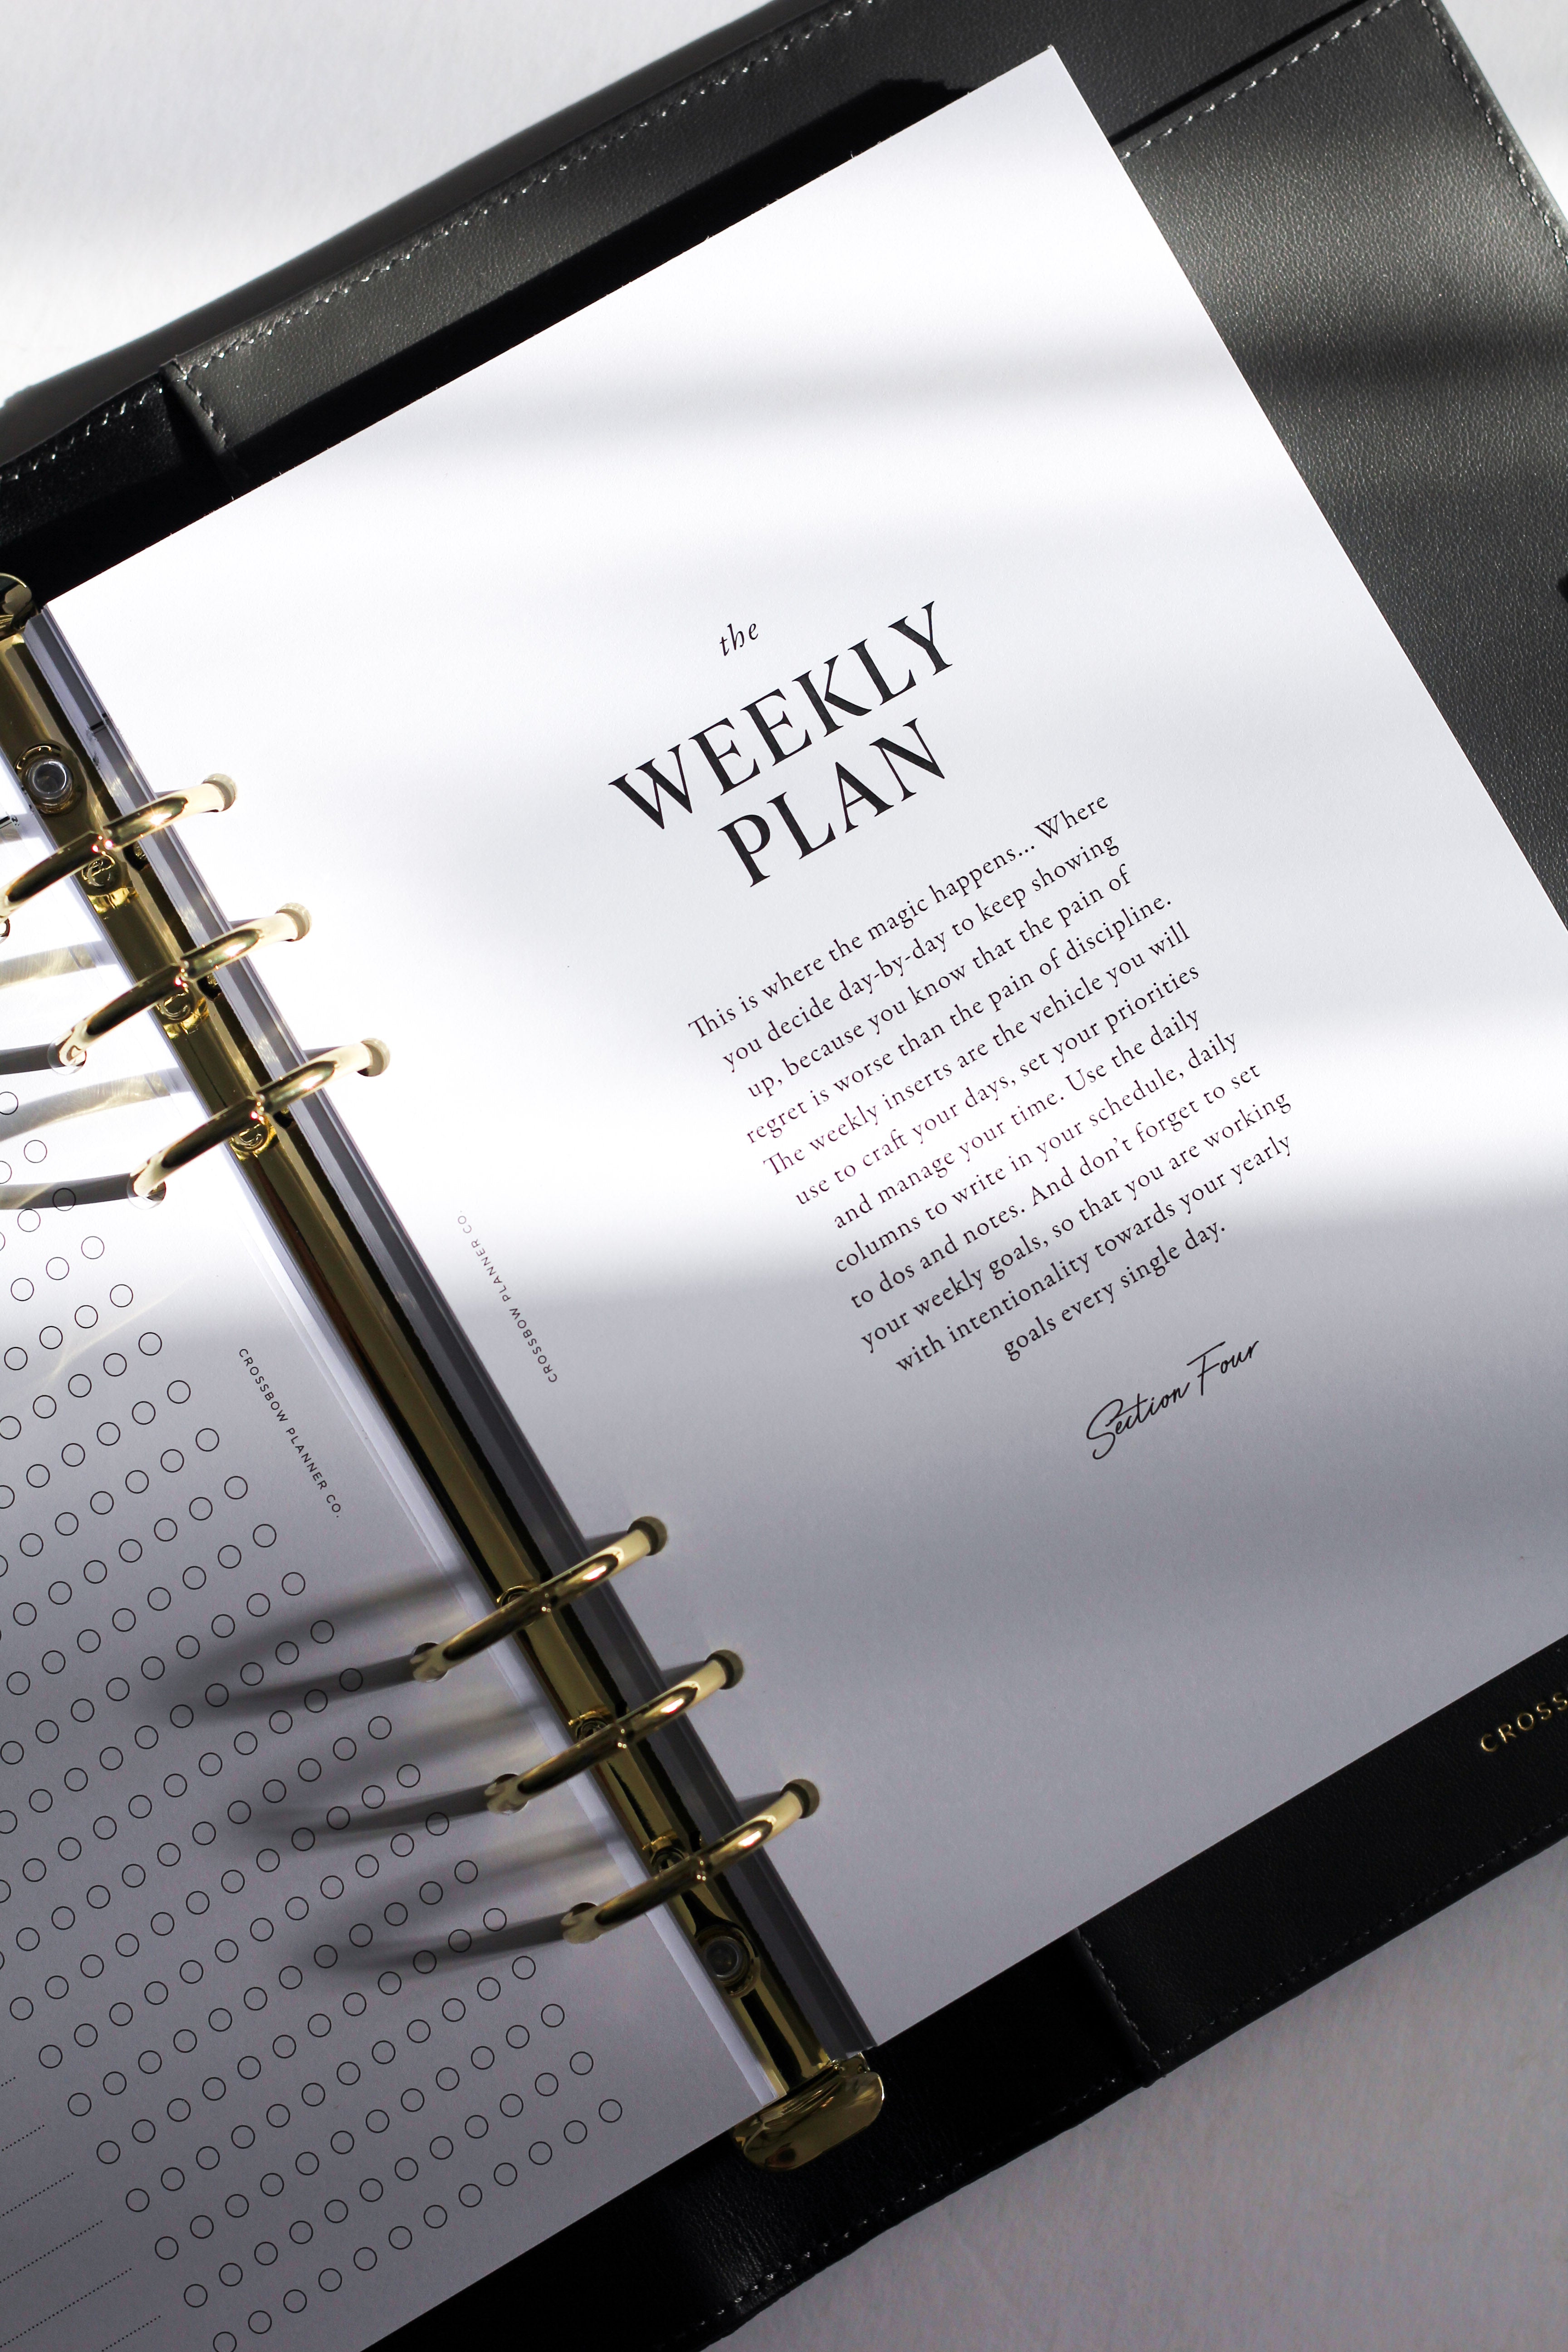 the
WEEKLY
PLAN
This is where the magic happens... Where
you decide day-by-day to keep showing
up, because you know that the pain of
regret is worse than the pain of discipline.
The weekly inserts are the vehicle you will
use to craft your days, set your priorities
and manage your time. Use the daily
columns to write in your schedule, daily
to dos and notes. And don't forget to set
your weekly goals, so that you are working
with intentionality towards your yearly
goals every single day.
Section Four
CROSSBOW PLANNER CO
CROSSBOW PLANNER CO.
CROSS